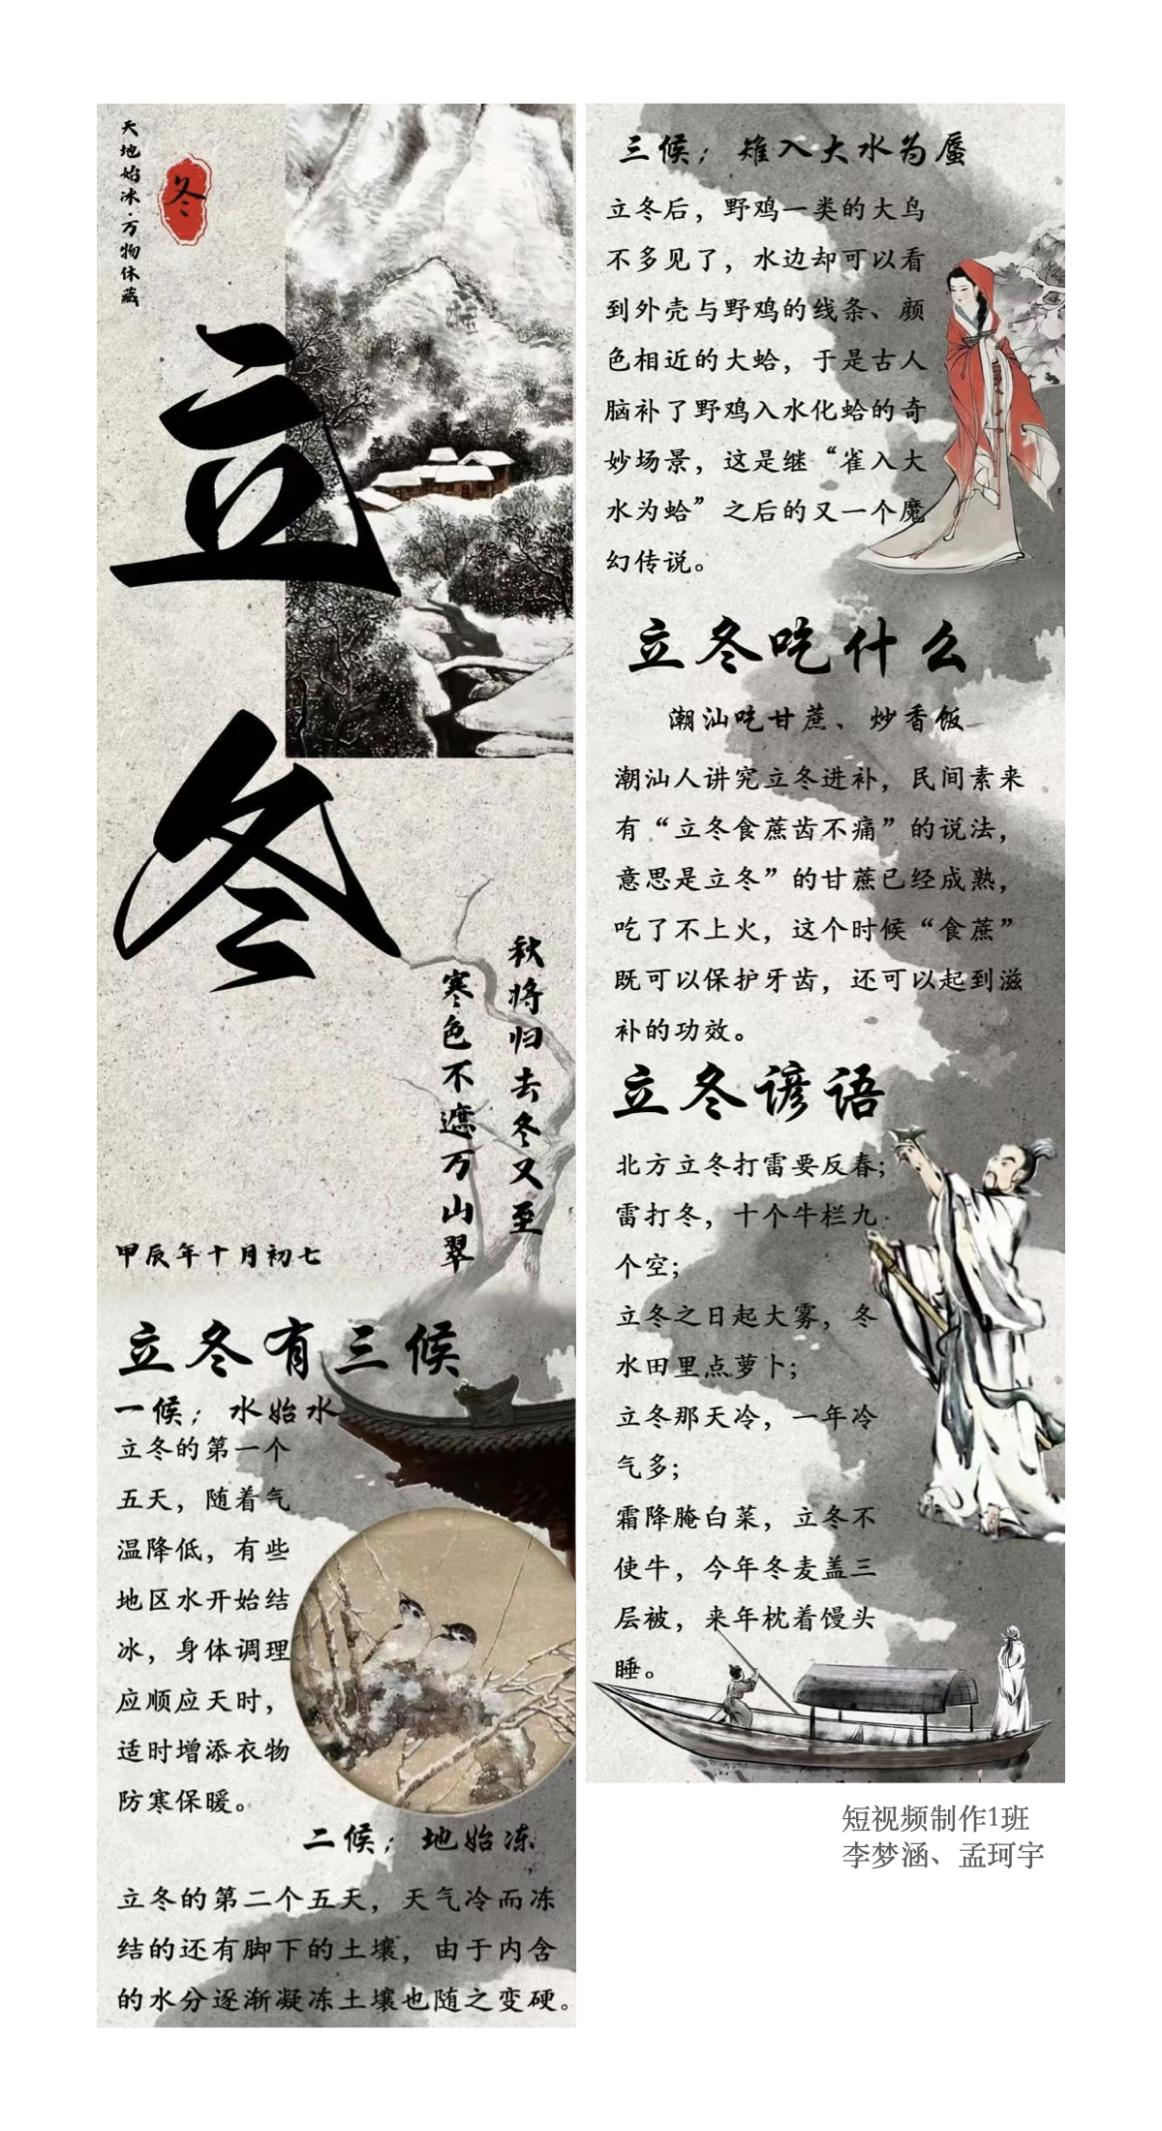 天地始冰·万物休藏
冬
立冬
秋将归去冬又至
寒色不遮万山翠
甲辰年十月初七
立冬有三候
一候；水始水
立冬的第一个
五天，随着气
温降低，有些
地区水开始结
冰，身体调理
应顺应天时，
适时增添衣物
防寒保暖。
二候；地始冻
立冬的第二个五天，天气冷而冻
结的还有脚下的土壤，由于内含
的水分逐渐凝冻土壤也随之变硬。
三候；雉入大水为蜃
立冬后，野鸡一类的大鸟
不多见了，水边却可以看
到外壳与野鸡的线条、颜
色相近的大蛤，于是古人
脑补了野鸡入水化蛤的奇
妙场景，这是继“雀入大
水为蛤”之后的又一个魔
幻传说。
立冬吃什么
潮汕吃甘蔗、炒香饭
潮汕人讲究立冬进补，民间素来
有“立冬食蔗齿不痛”的说法，
意思是立冬”的甘蔗已经成熟，
吃了不上火，这个时候“食蔗”
既可以保护牙齿，还可以起到滋
补的功效。
立冬谚语
北方立冬打雷要反春；
雷打冬，十个牛栏九
个空；
立冬之日起大雾，冬
水田里点萝卜；
立冬那天冷，一年冷
气多；
霜降腌白菜，立冬不
使牛，今年冬麦盖三
层被，来年枕着馒头
睡。
短视频制作1班
李梦涵、孟珂宇